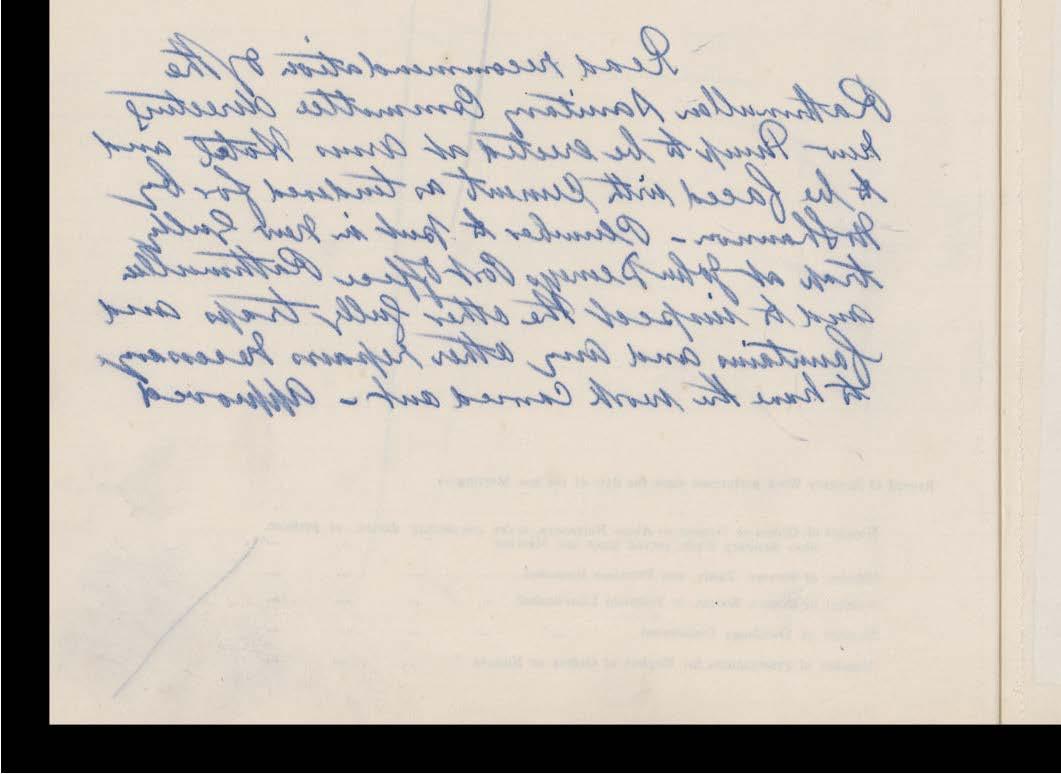 Read recommendation of the
Rathmullan Sanitary Committee directing
new Pump to be erected at Arms Hotel and
to be faced with Cement as tendered for by
Shannon - Plumber to put in new Gully
trap at John Deeneys Post Office Rathmullan
and to inspect the other gully traps and
fountains and any other repairs necessary
to have the work carried out - Approved
Record of Sanitary Work performed since the date of the last Meeting:-
Number of
Number of
Number of
Number of Dwellings
Number of Prosecutions for Neglect of Orders or Notices